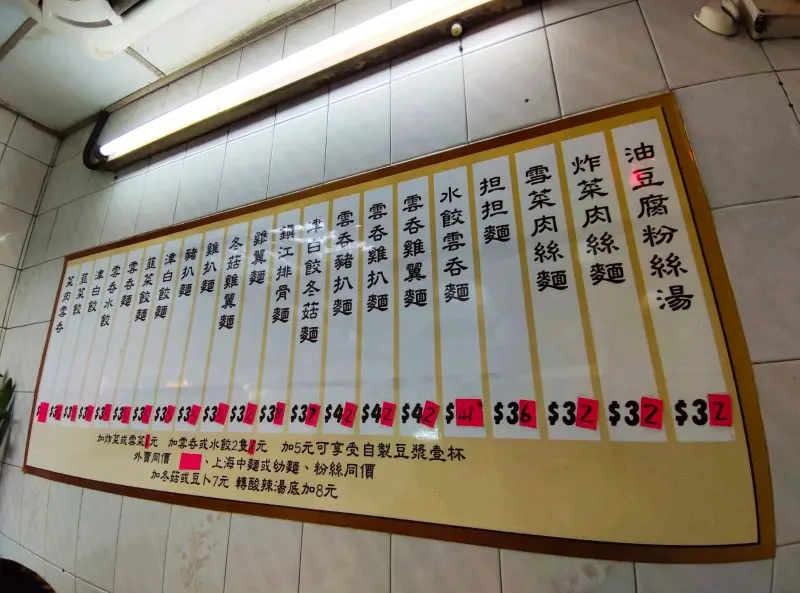 油豆腐粉絲湯 $32
炸菜肉絲麵 $32
雪菜肉絲麵 $32
担担麵 $36
水餃雲吞麵 $41
雲吞雞翼麵 $42
雲吞雞扒麵 $42
雲吞豬扒麵 $42
津白餃冬菇麵 $37
鎮江排骨麵
雞翼麵
冬菇雞翼麵
雞扒麵
豬扒麵
津白餃麵
韮菜餃麵
雲吞麵
雲吞水餃
津白餃
韮菜餃
菜肉雲吞
加炸菜或雪菜元 加雲吞或水餃2隻元 加5元可享受自製豆漿壹杯
外賣同價 、上海中麵或幼麵、粉絲同價
加冬菇或豆卜7元 轉酸辣湯底加8元